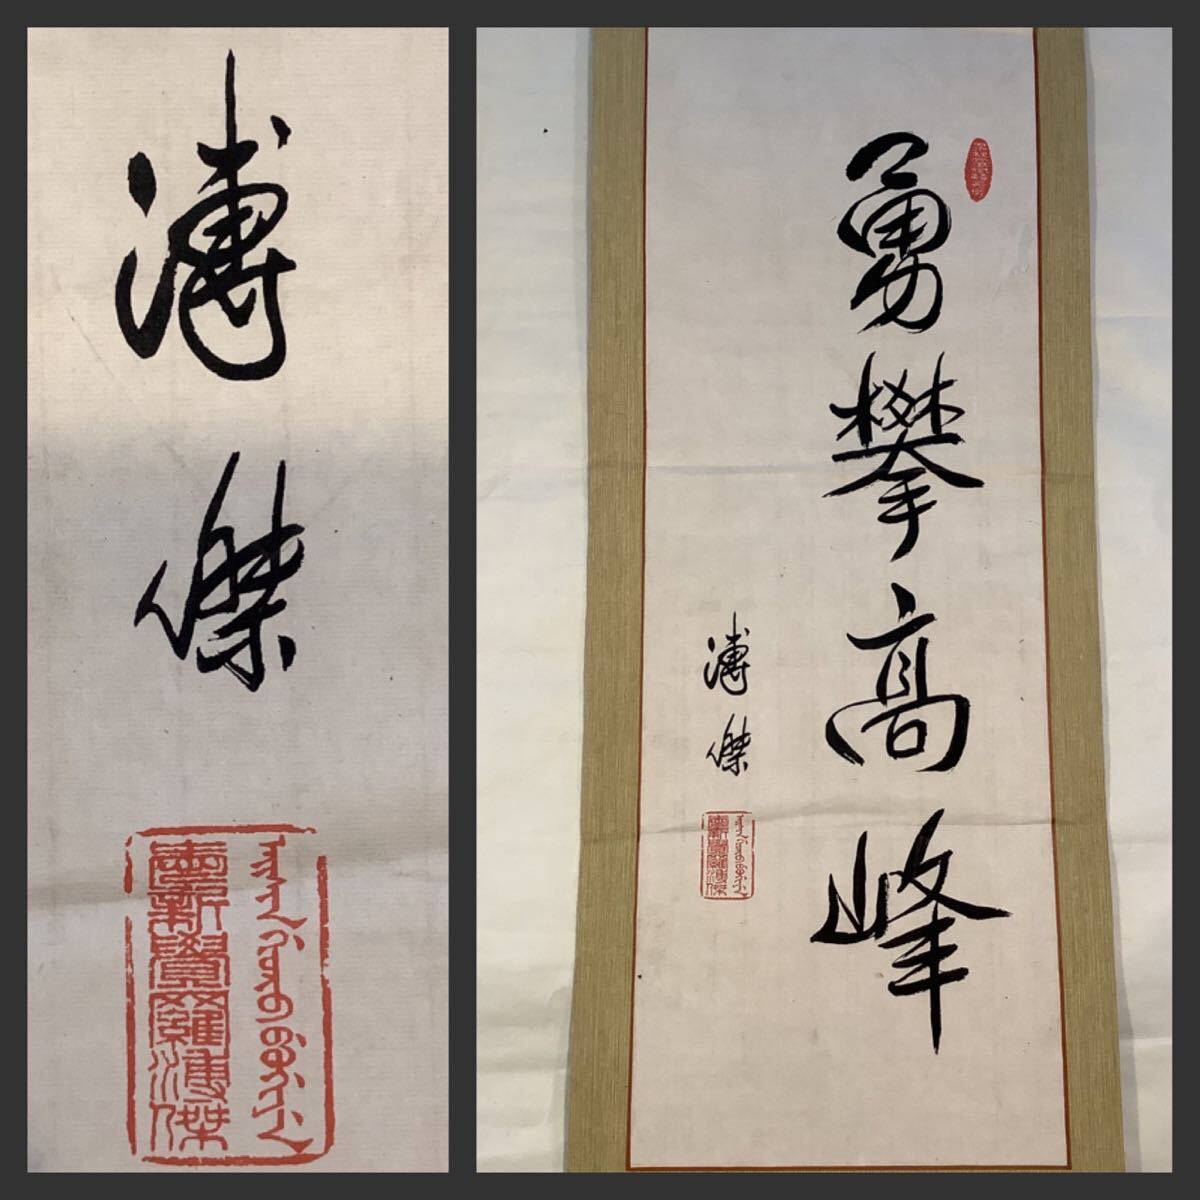 勇攀高峰
溥傑
愛新覺羅溥傑
溥
傑
愛新覺羅溥傑